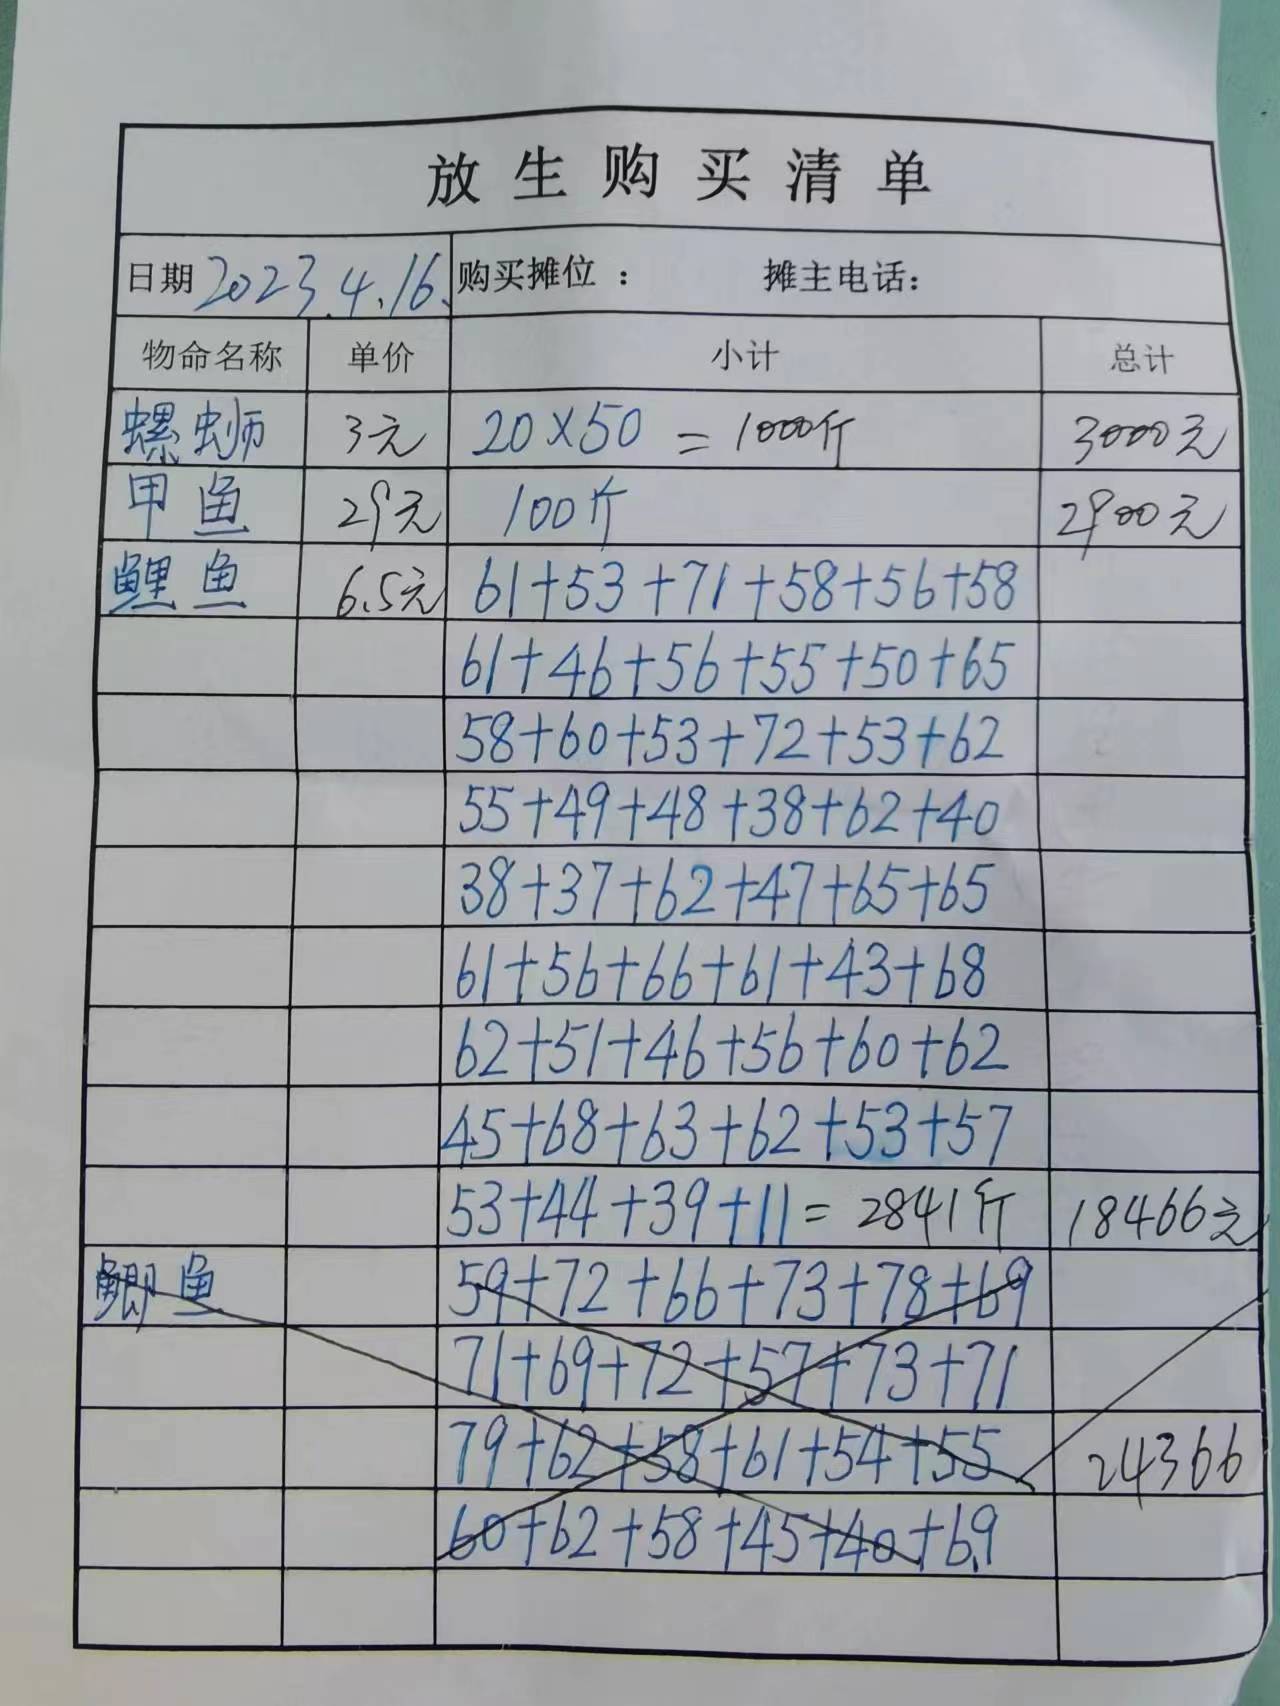 放生购买清单
日期 2023.4.16. 购买摊位： 摊主电话：
物命名称 单价 小计 总计
螺蛳 3元 20×50 = 1000斤 3000元
甲鱼 29元 100斤 2900元
鲤鱼 6.5元 61+53+71+58+56+58
61+46+56+55+50+65
58+60+53+72+53+62
55+49+48+38+62+40
38+37+62+47+65+65
61+56+66+61+43+68
62+51+46+56+60+62
45+68+63+62+53+57
53+44+39+11=2841斤 18466元
鲫鱼 59+72+66+73+78+69
71+69+72+57+73+71
79+62+58+61+54+55 24366
60+62+58+45+40+69